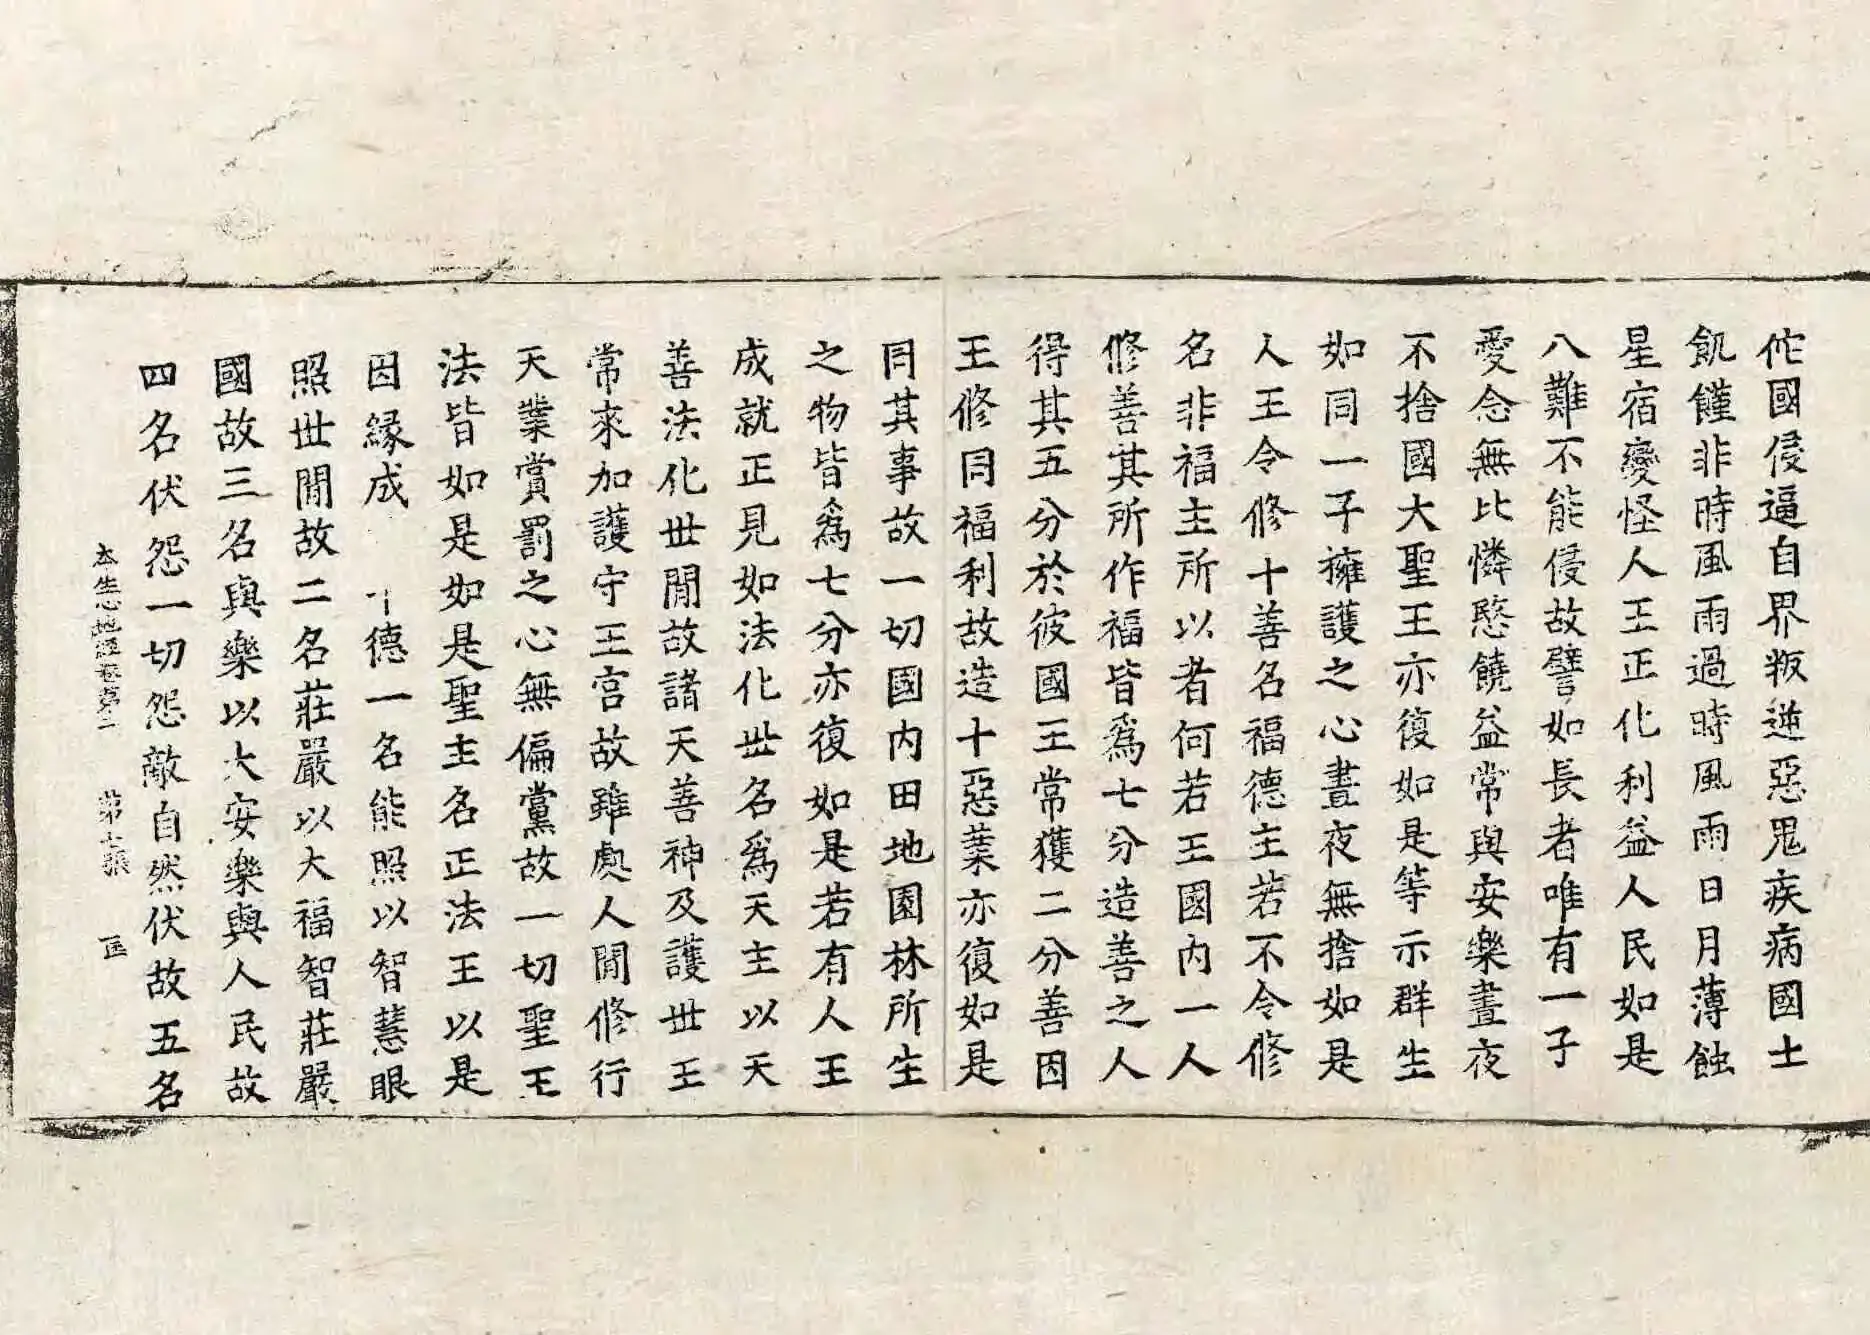 他國侵逼自界叛逆惡鬼疾病國土
飢饉非時風雨過時風雨日月薄蝕
星宿變怪人王正化利益人民如是
八難不能侵故譬如長者唯有一子
愛念無比憐愍饒益常與安樂晝夜
不捨國大聖王亦復如是等示群生
如同一子擁護之心晝夜無捨如是
人王令修十善名福德主若不令修
名非福主所以者何若王國內一人
修善其所作福皆爲七分造善之人
得其五分於彼國王常獲二分善因
王修同福利故造十惡業亦復如是
同其事故一切國內田地園林所生
之物皆爲七分亦復如是若有人王
成就正見如法化世名爲天主以天
善法化世間故諸天善神及護世王
常來加護守王宮故雖處人間修行
天業賞罰之心無偏黨故一切聖王
法皆如是如是聖主名正法王以是
因緣成十德一名能照以智慧眼
照世間故二名莊嚴以大福智莊嚴
國故三名與樂以大安樂與人民故
四名伏怨一切怨敵自然伏故五名
本生心地經卷第二 第七張 匡